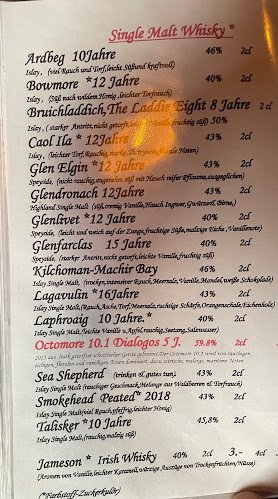 Single Malt Whisky *
Ardbeg 10Jahre 46% 2cl
Islay , (viel Rauch und Torf,leicht Süßund kraftvoll)
Bowmore *12 Jahre 40% 2cl
Islay , (Süß nach wildem Honig ,leichter Torfrauch)
Bruichladdich,The Laddie Eight 8 Jahre 2cl
Islay , ( starker Antritt,nicht getorft, Vanille,fruchtig süß) 50%
Caol Ila * 12Jahre 43% 2cl
Islay , (leichter Torf,Rauchig, Noten)
Glen Elgin *12 Jahre 43% 2cl
Speyside, (nicht rauchig, mit Hauch reifer Pflaume,ausgeglichen)
Glendronach 12Jahre 43% 2cl
Highland Single Malt (süß,cremig Vanille,Hauch Ingwer,Gewürze, Birne,)
Glenlivet *12 Jahre 40% 2cl
Speyside, (leicht und weich auf der Zunge,fruchtige Süße,malzige Eiche ,Vanillenote)
Glenfarclas 15 Jahre 40% 2cl
Speyside, ( starker Antritt,nicht getorft,leichte Vanille,fruchtig süß)
Kilchoman-Machir Bay 46% 2cl
Islay Single Malt, (trocken,intensiver Rauch,Meersalz,Vanille,Mandel,weiße Schokolade)
Lagavulin *16Jahre 43% 2cl
Islay Single Malt, (Rauch,Asche,Torf,Meersalz,ruchtige Schärfe,Orangenschale,Eichenholz)
Laphroaig 10 Jahre,* 40% 2cl
Islay Single Malt,(leichte Vanille u.Apfel,rauchig,Seetang,Salzwasser)
Octomore 10.1 Dialogos 5 J. 59.8% 2cl
2013 aus stark getorfter schottischer Gerste gebrannt.Der Octomore 10.1 wird von rauchigen,
Sea Shepherd (trinken el gutes tun) 43% 2cl
Islay Single Malt (rauchiger Geschmack,Melange aus Waldbeeren el.Torfrauch)
Smokehead Peated* 2018 43% 2cl
Islay Single Malt(viel Rauch,pfeffrig,leicht Honig)
Talisker *10 Jahre 45,8% 2cl
Islay Single Malt,(rauchig,malzig süß)
Jameson * Irish Whisky 40% 2cl 3.- 4cl
(Aromen von Vanille,leichter Karamell,würzige Auszüge von Trockenfrüchten/Nüsse)
(*Farbstoff-Zuckerkulör)